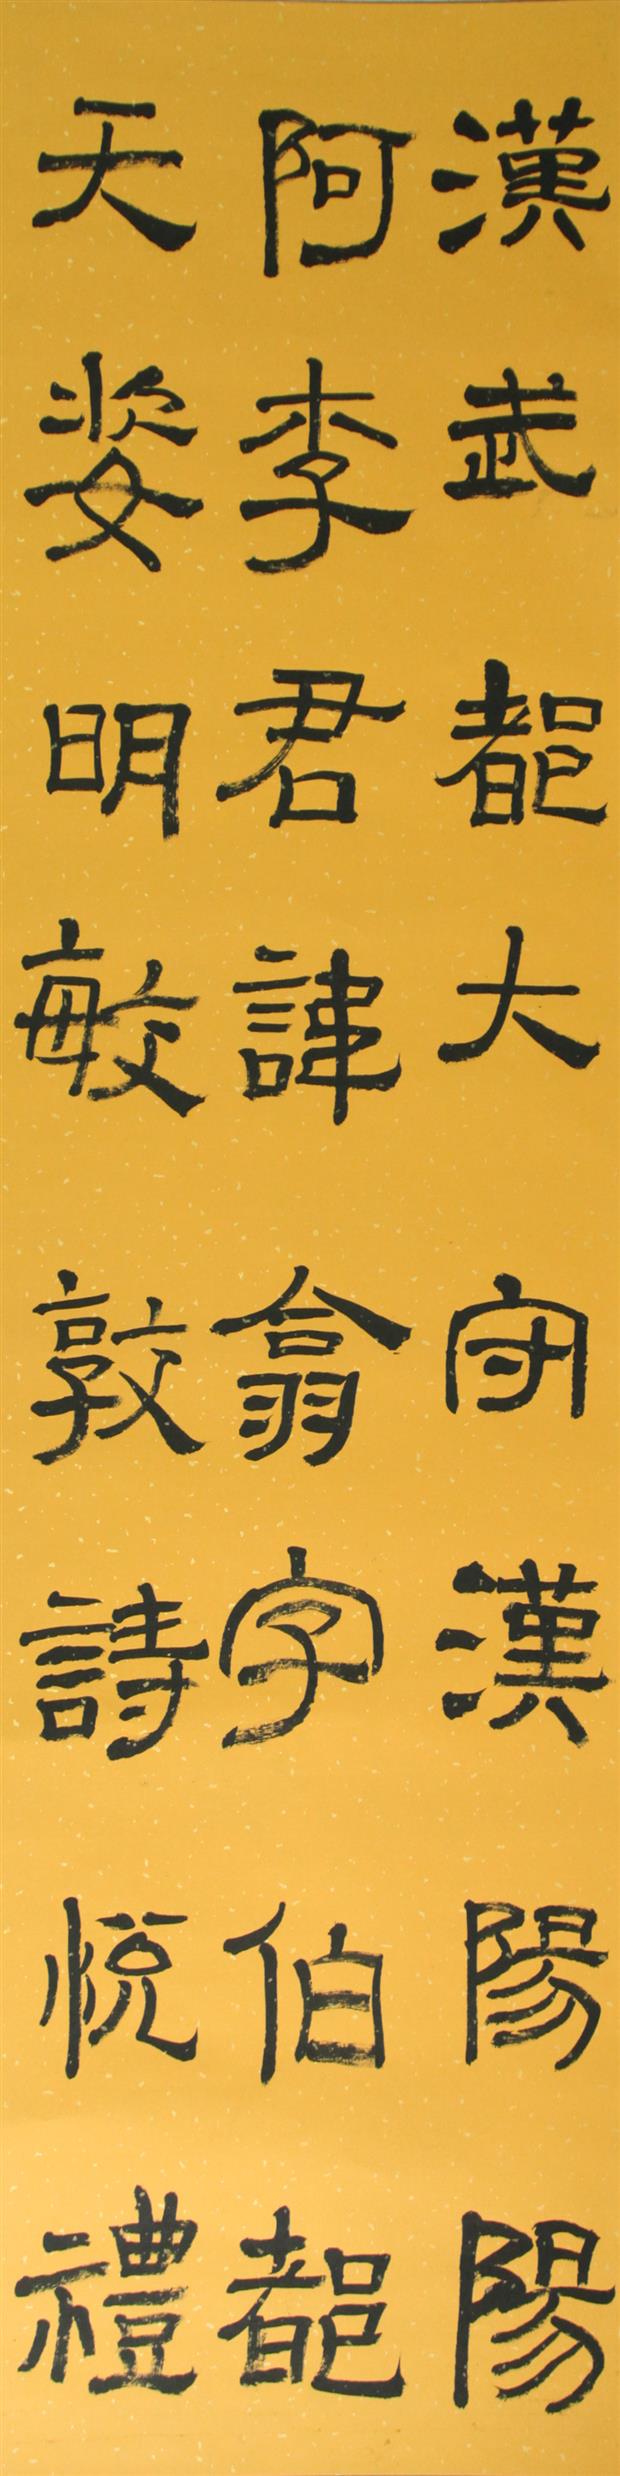 漢武都大守漢陽陽
阿李君諱翕字伯都
天姿明敏敦詩悅禮